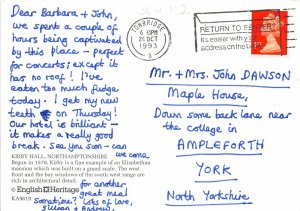 Dear Barbara + John,
we spent a couple of
hours being captivated
by this place - perfect
for concerts; except it
has no roof! I've
eaten too much fudge
today. I get my new
teeth on Thursday!
Our hotel is brilliant -
it makes a really good
break. See you soon - can
we come
for another
great meal
sometime? Lots of love,
Lillian + Andrew.
KIRBY HALL, NORTHAMPTONSHIRE
Begun in 1570, Kirby is a fine example of an Elizabethan
mansion which was built on a grand scale. The west
front and the bay windows of the south west range are
rich in architectural detail.
English Heritage
KA9619
TONBRIDGE
6 15PM
26 OCT
1993
RETURN TO SE
It's easier with y
address on the ba
Mr. + Mrs. John DAWSON
Maple House,
Down some back lane near
the college in
AMPLEFORTH
YORK
North Yorkshire